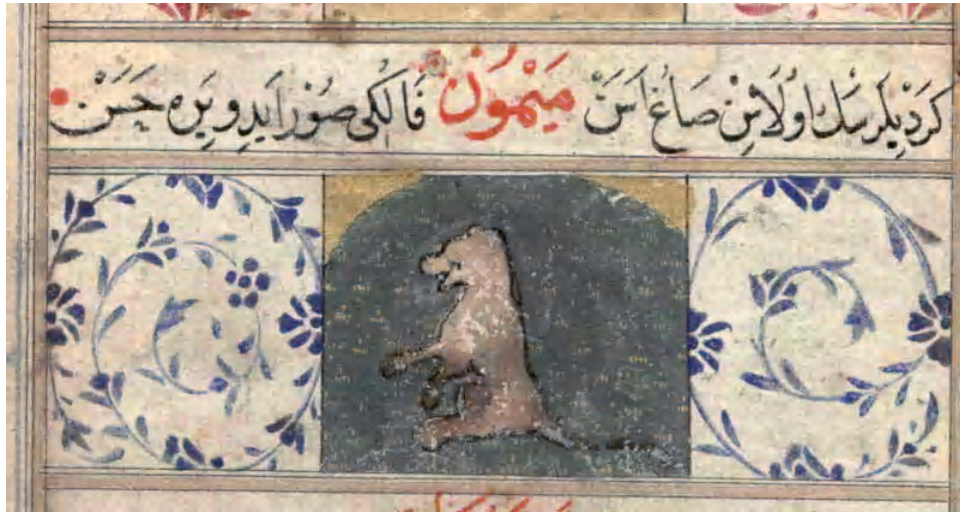 كَرْدِيلَرْسَكْ اوُلَاسِنْ صَاغْ اَسَنْ مَيْمُونْ فَالَكِى صُوْرْ اَيْدِ وِيرَه حَسَنْ